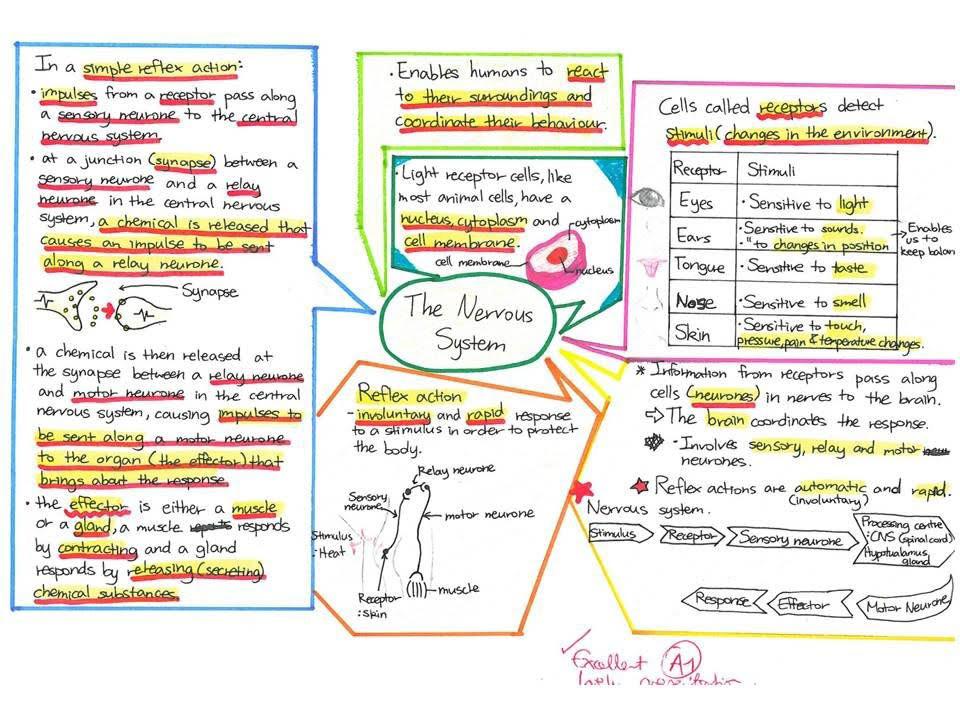 In a simple reflex action:
• impulses from a receptor pass along
a sensory neurone to the central
nervous system.
• at a junction (synapse) between a
sensory neurone and a relay
neurone in the central nervous
system, a chemical is released that
causes an impulse to be sent
along a relay neurone.
Synapse
• a chemical is then released at
the synapse between a relay neurone
and motor neurone in the central
nervous system, causing impulses to
be sent along a motor neurone
to the organ (the effector) that
brings about the response
• the effector is either a muscle
or a gland, a muscle responds
by contracting and a gland
responds by releasing (secreting)
chemical substances.
• Enables humans to react
to their surroundings and
coordinate their behaviour.
• Light receptor cells, like
most animal cells, have a
nucleus, cytoplasm and
cell membrane.
cytoplasm
cell membrane
nucleus
The Nervous
System
Reflex action
- involuntary and rapid response
to a stimulus in order to protect
the body.
Relay neurone
Sensory
neurone
motor neurone
Stimulus
: Heat
muscle
Receptor
: Skin
Cells called receptors detect
stimuli (changes in the environment).
Receptor Stimuli
Eyes • Sensitive to light
Ears • Sensitive to sounds.
• " to changes in position
Enables
us to
keep balan
Tongue • Sensitive to taste
Nose • Sensitive to smell
Skin • Sensitive to touch,
pressure, pain & temperature changes.
* Information from receptors pass along
cells (neurones) in nerves to the brain.
⇨ The brain coordinates the response.
• Involves sensory, relay and motor
neurones.
★ Reflex actions are automatic and rapid.
(involuntary)
Nervous system.
Stimulus
Receptor
Sensory neurone
Processing centre
: CNS (spinal cord)
Hypothalamus
gland
Motor Neurone
Effector
Response
✓ Excellent A1